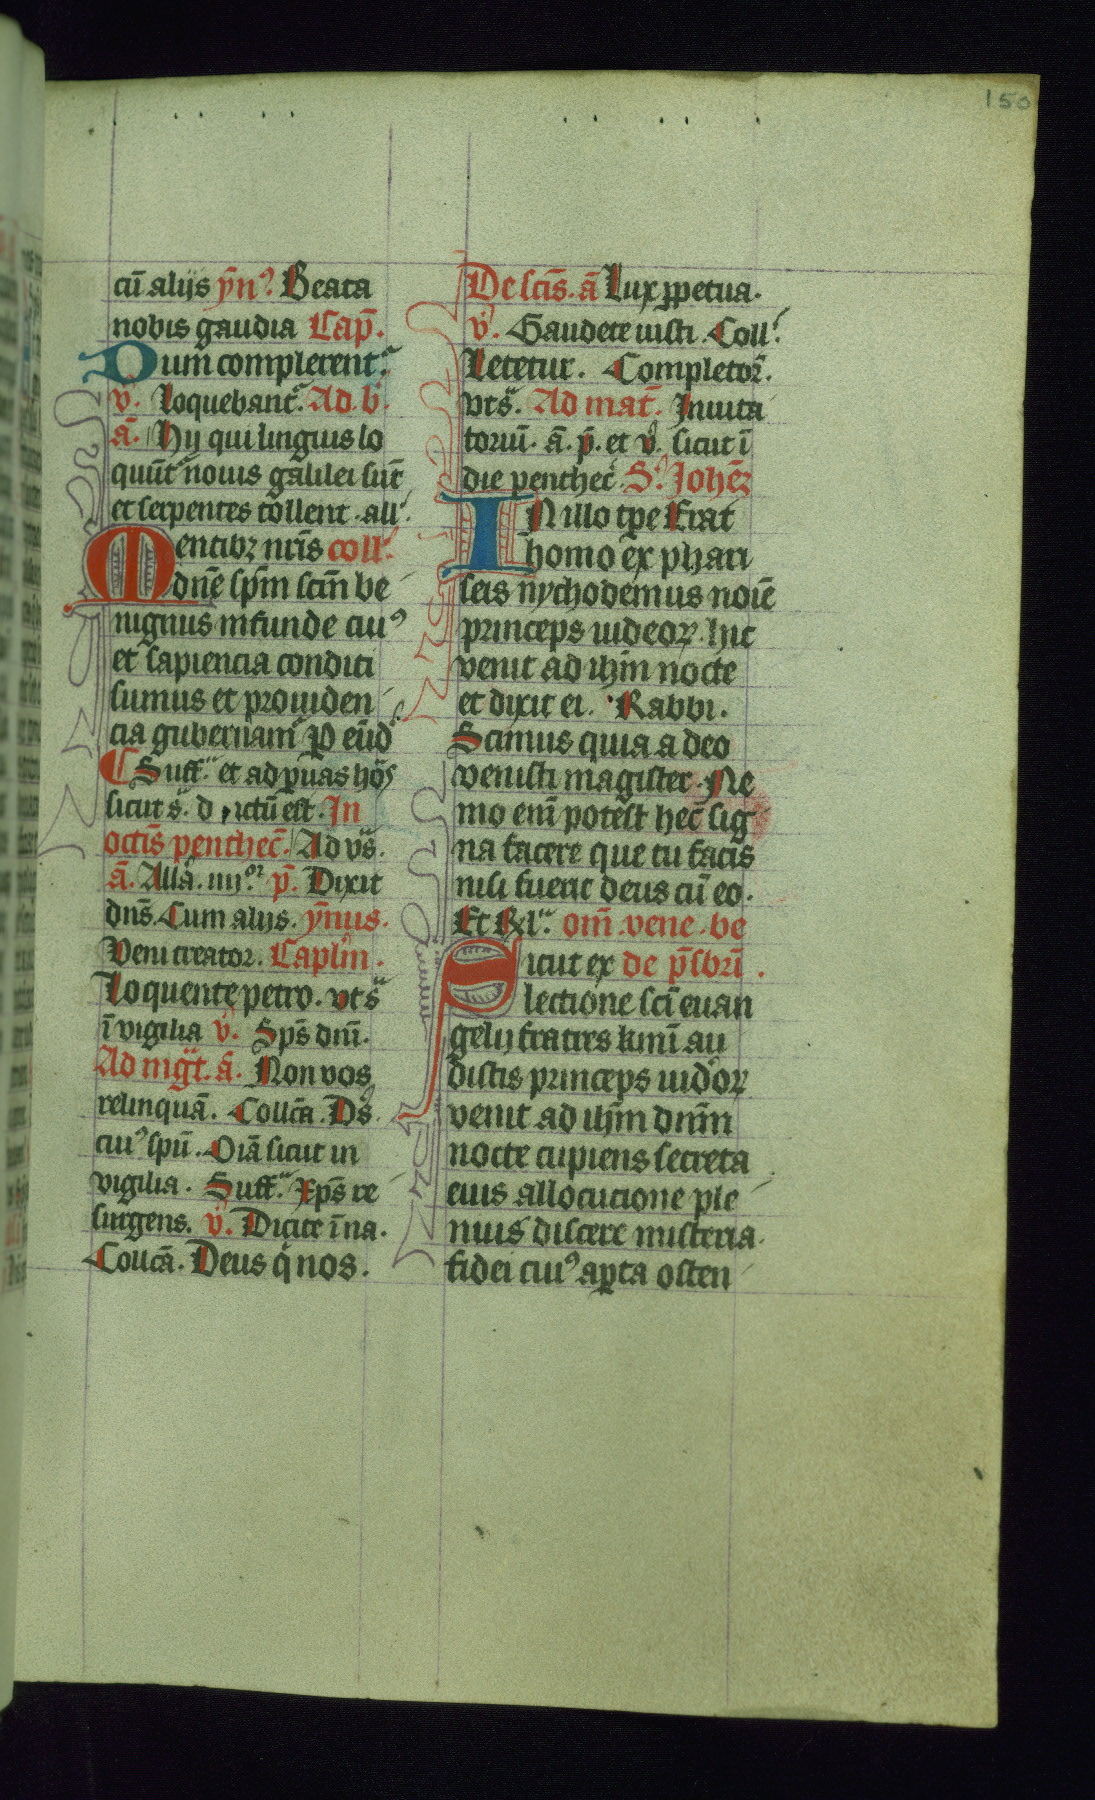 150
cū alijs ȳnꝰ. Beata
nobis gaudia Cap̄.
Dum complerent᷑.
v̄. Loquebant᷑. Ad. b᷑.
ā. Hij qui linguis lo
quūt᷑ nouis galilei sūt
et serpentes tollent. all᷑.
Mentibꝫ nr̄is coll᷑.
dn̄e sp̄m scm̄ be
nignus infunde cuiꝰ
et sapiencia conditi
sumus et prouiden
cia gubernam᷑ P eūd᷑
Suff᷑. et ad ꝑuas hōs
sicut s᷑. dictū est. In
octīs penthec̄. Ad vs̄.
ā. Allā. iiij.or p̄. Dixit
dn̄s. Cum alijs. ȳnus.
Veni creator. Caplm̄.
Loquente petro. vts᷑
ī vigilia v̄. Sps̄ dnī.
Ad mgt᷑. ā. Non vos
relinquā. Collc̄a. Ds̄
cuiꝰ spū. Oīa sicut in
vigilia. Suff᷑. Xps̄ re
surgens. v̄. Dicite ī na.
Collc̄a. Deus q̄ nos.
De scīs. ā Lux ꝑpetua.
v̄. Gaudete iusti. Coll᷑.
Letetur. Completor̄.
vts᷑. Ad mat̄. Inuita
toriū. ā. p̄. et v̄. sicut ī
die penthec᷑. S. Joheꝫ
In illo tp̄e Erat
homo ex phari
seis nychodemus noīe
princeps iudeoꝝ. hic
venit ad ihm̄ nocte
et dixit ei. Rabbi.
Scimus quia a deo
venisti magister. Ne
mo enī potest hec̄ sig
na facere que tu facis
nisi fuerit deus cū eo.
Et Rl᷑. om̄. vene. be
Sicut ex de p̄sbrī.
lectione scī euan
gelij fratres kmī au
distis princeps iudoꝝ
venit ad ihm̄ dnm̄
nocte cupiens secreta
eius allocucione ple
nius discere misteria.
fidei cuiꝰ aꝑta osten